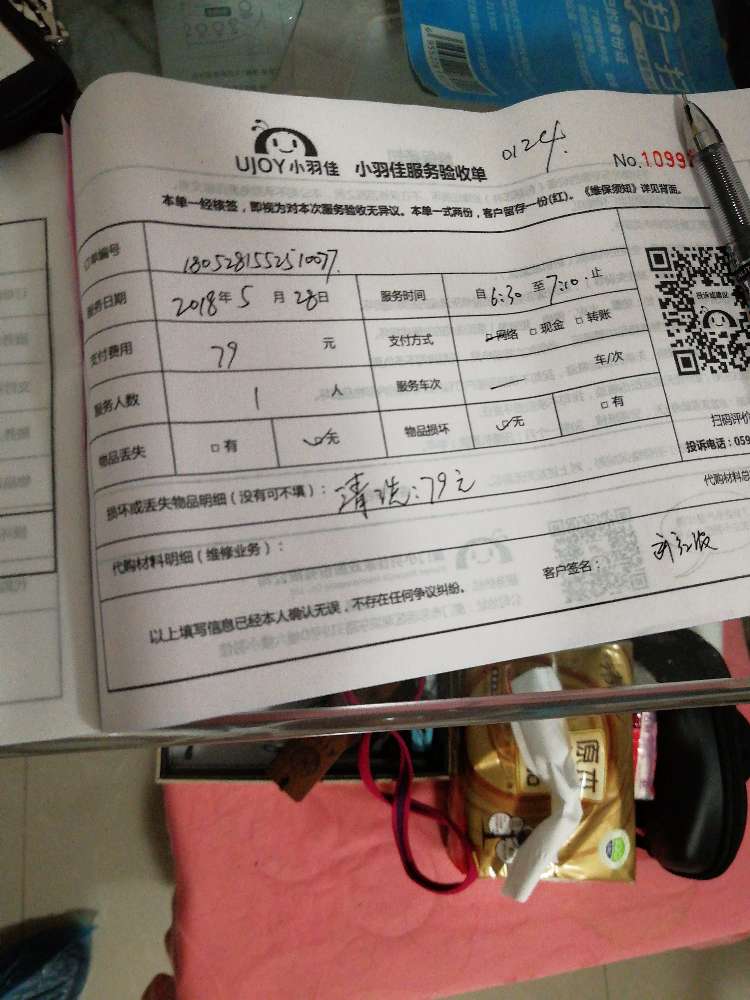 UJOY小羽佳 小羽佳服务验收单 0124 No.1099
本单一经核签，即视为对本次服务验收无异议。本单一式两份，客户留存一份(红)。《维保须知》详见背面。
订单编号 1805281552510077
服务日期 2018年5月28日 服务时间 自6:30至7:10止
支付费用 79 元 支付方式 网络 □现金 □转账
服务人数 1 人 服务车次 车/次
物品丢失 □有 无 物品损坏 无 □有
投诉或建议
扫码评价
投诉电话：059
损坏或丢失物品明细（没有可不填）：清洗：79元
代购材料总
代购材料明细（维修业务）：
客户签名：
以上填写信息已经本人确认无误，不存在任何争议纠纷。
扫一扫
原木